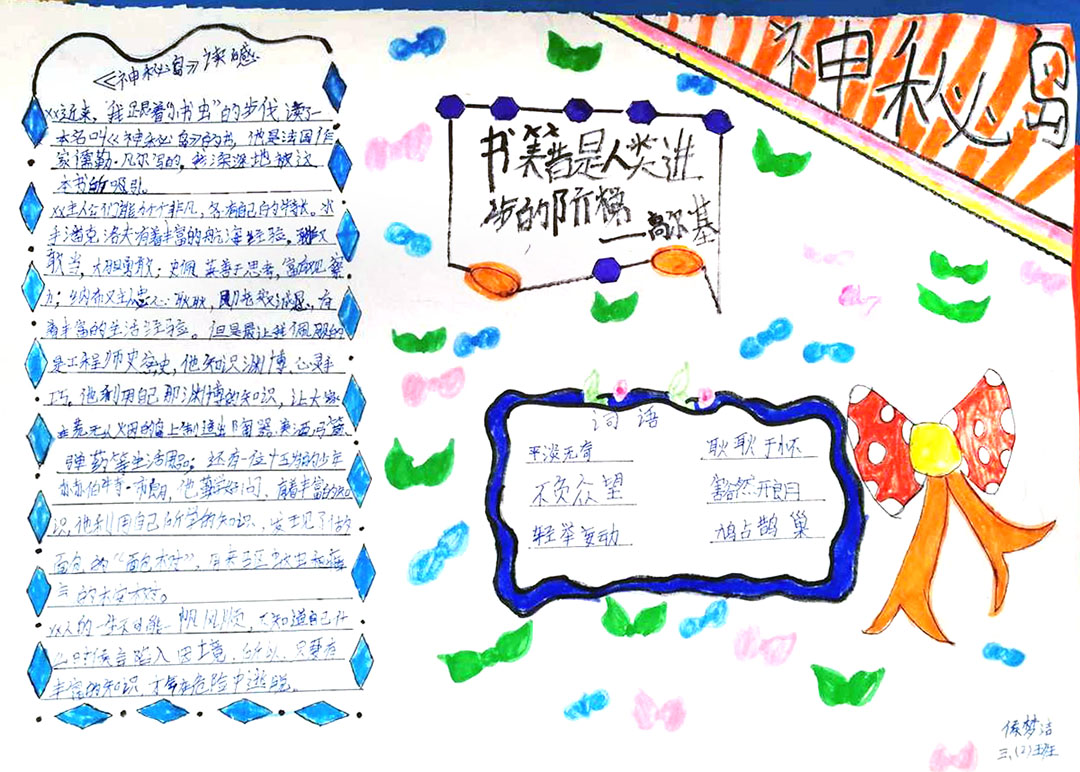 神秘岛
《神秘岛》读感
xx近来，我跟着"书虫"的步伐读了一
本名叫《神秘岛》的书，他是法国作
家儒勒·凡尔写的，我深深地被这
本书所吸引。
xx主人公们能力个个非凡，各有自己的特长。水
手潘克洛夫有着丰富的航海经验，
敢当，大胆勇敢；史佩莱善于思考，富有观察
力；纳布又忠心耿耿，
着丰富的生活经验。但是最让我佩服的
是工程师史密史，他知识渊博、心灵手
巧，他利用自己那渊博的知识，让大家
在荒无人烟的岛上制造出陶器、
弹药等生活用品；还有一位十五岁的少年
他勤学好问，有着丰富的知
识，他利用自己所学的知识，发现了做
面包的"面包木树"，
的木安木树。
xx人的一生不可能一帆风顺，不知道自己什
么时候会陷入困境，所以，只要有
丰富的知识，才能在危险中逃脱。
书笑昔是人类进
步的阶梯
——高尔基
词语
平淡无奇 耿耿于怀
不负众望 豁然开朗
轻举妄动 鸠占鹊巢
侯梦洁
三、(2)班